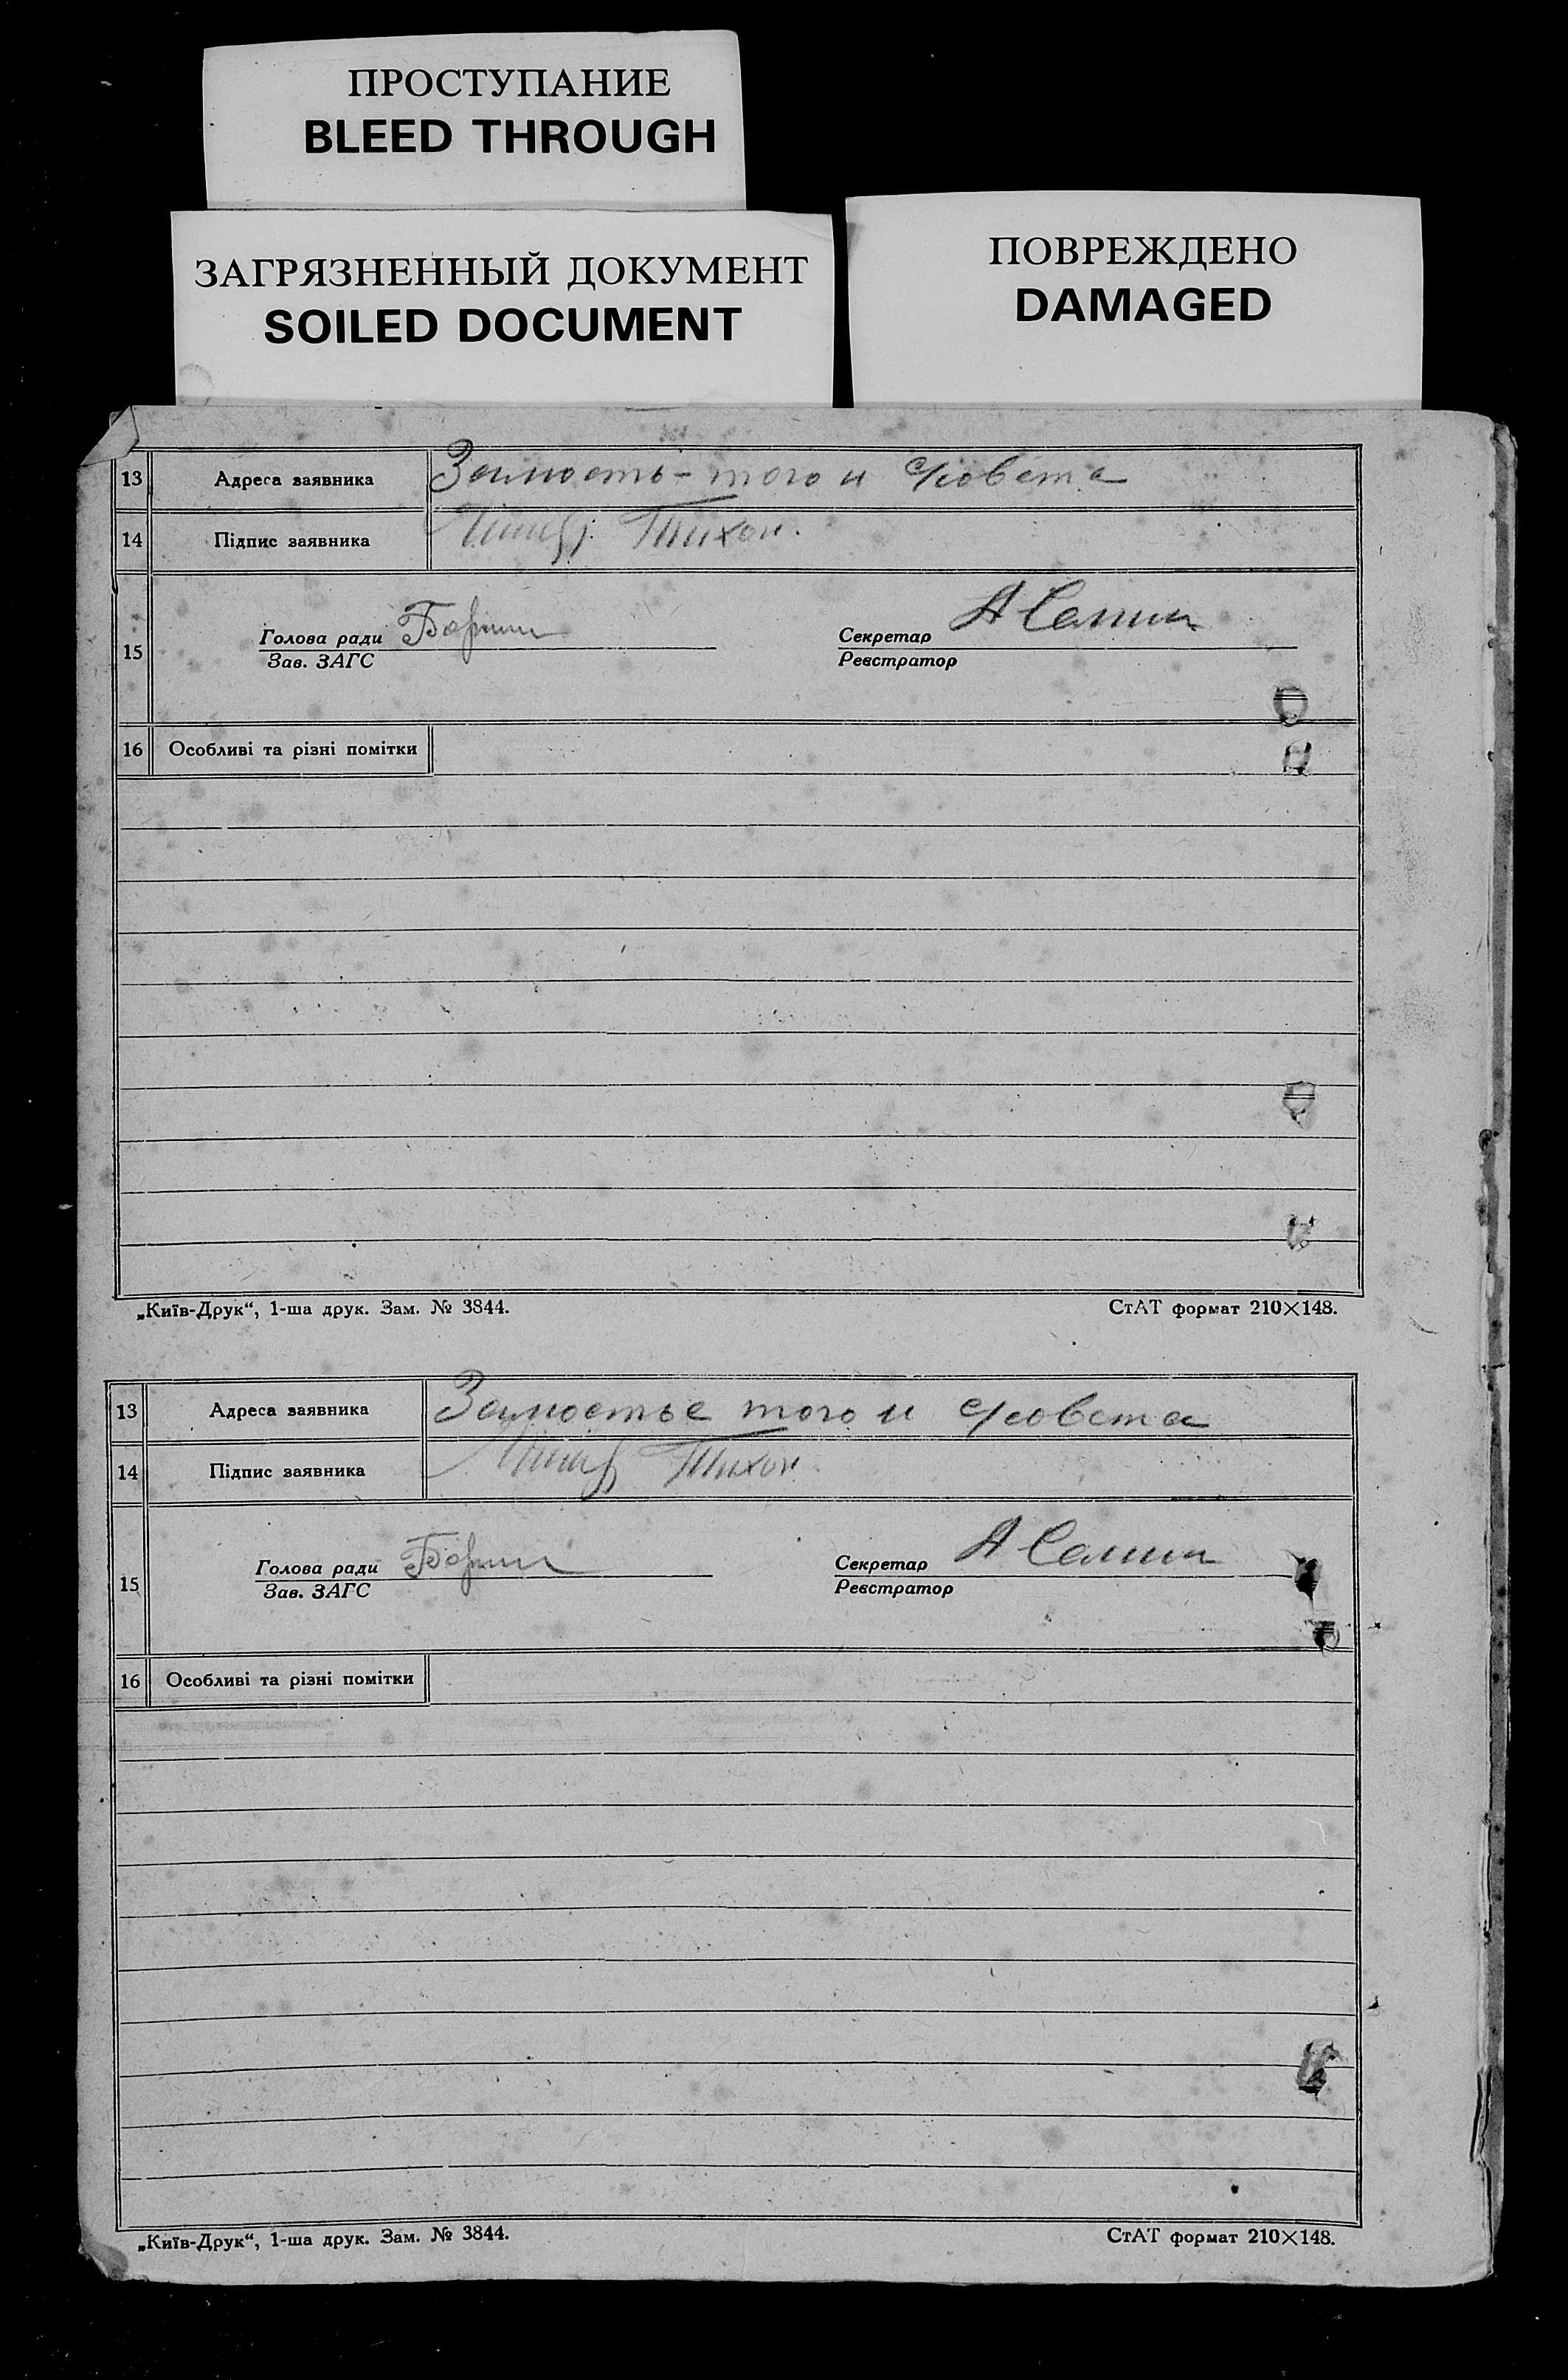 ПРОСТУПАНИЕ
BLEED THROUGH
ЗАГРЯЗНЕННЫЙ ДОКУМЕНТ
SOILED DOCUMENT
ПОВРЕЖДЕНО
DAMAGED
13 Адреса заявника Замость - того и с/совета
14 Підпис заявника Тихон.
15 Голова ради Секретар А
Зав. ЗАГС Реєстратор
16 Особливі та різні помітки
„Київ-Друк“, 1-ша друк. Зам. № 3844. СтАТ формат 210×148.
13 Адреса заявника Замостье того и с/совета
14 Підпис заявника Тихон.
15 Голова ради Секретар А
Зав. ЗАГС Реєстратор
16 Особливі та різні помітки
„Київ-Друк“, 1-ша друк. Зам. № 3844. СтАТ формат 210×148.